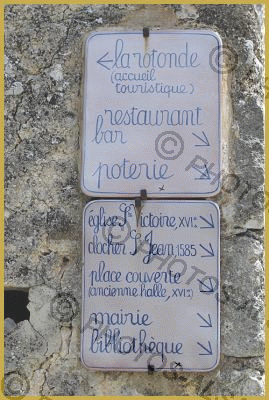 ← la rotonde
(accueil
touristique)
restaurant
bar
poterie
église Ste Victoire, XVIe
clocher St Jean 1585
place couverte
(ancienne halle, XVIe)
mairie
bibliothèque